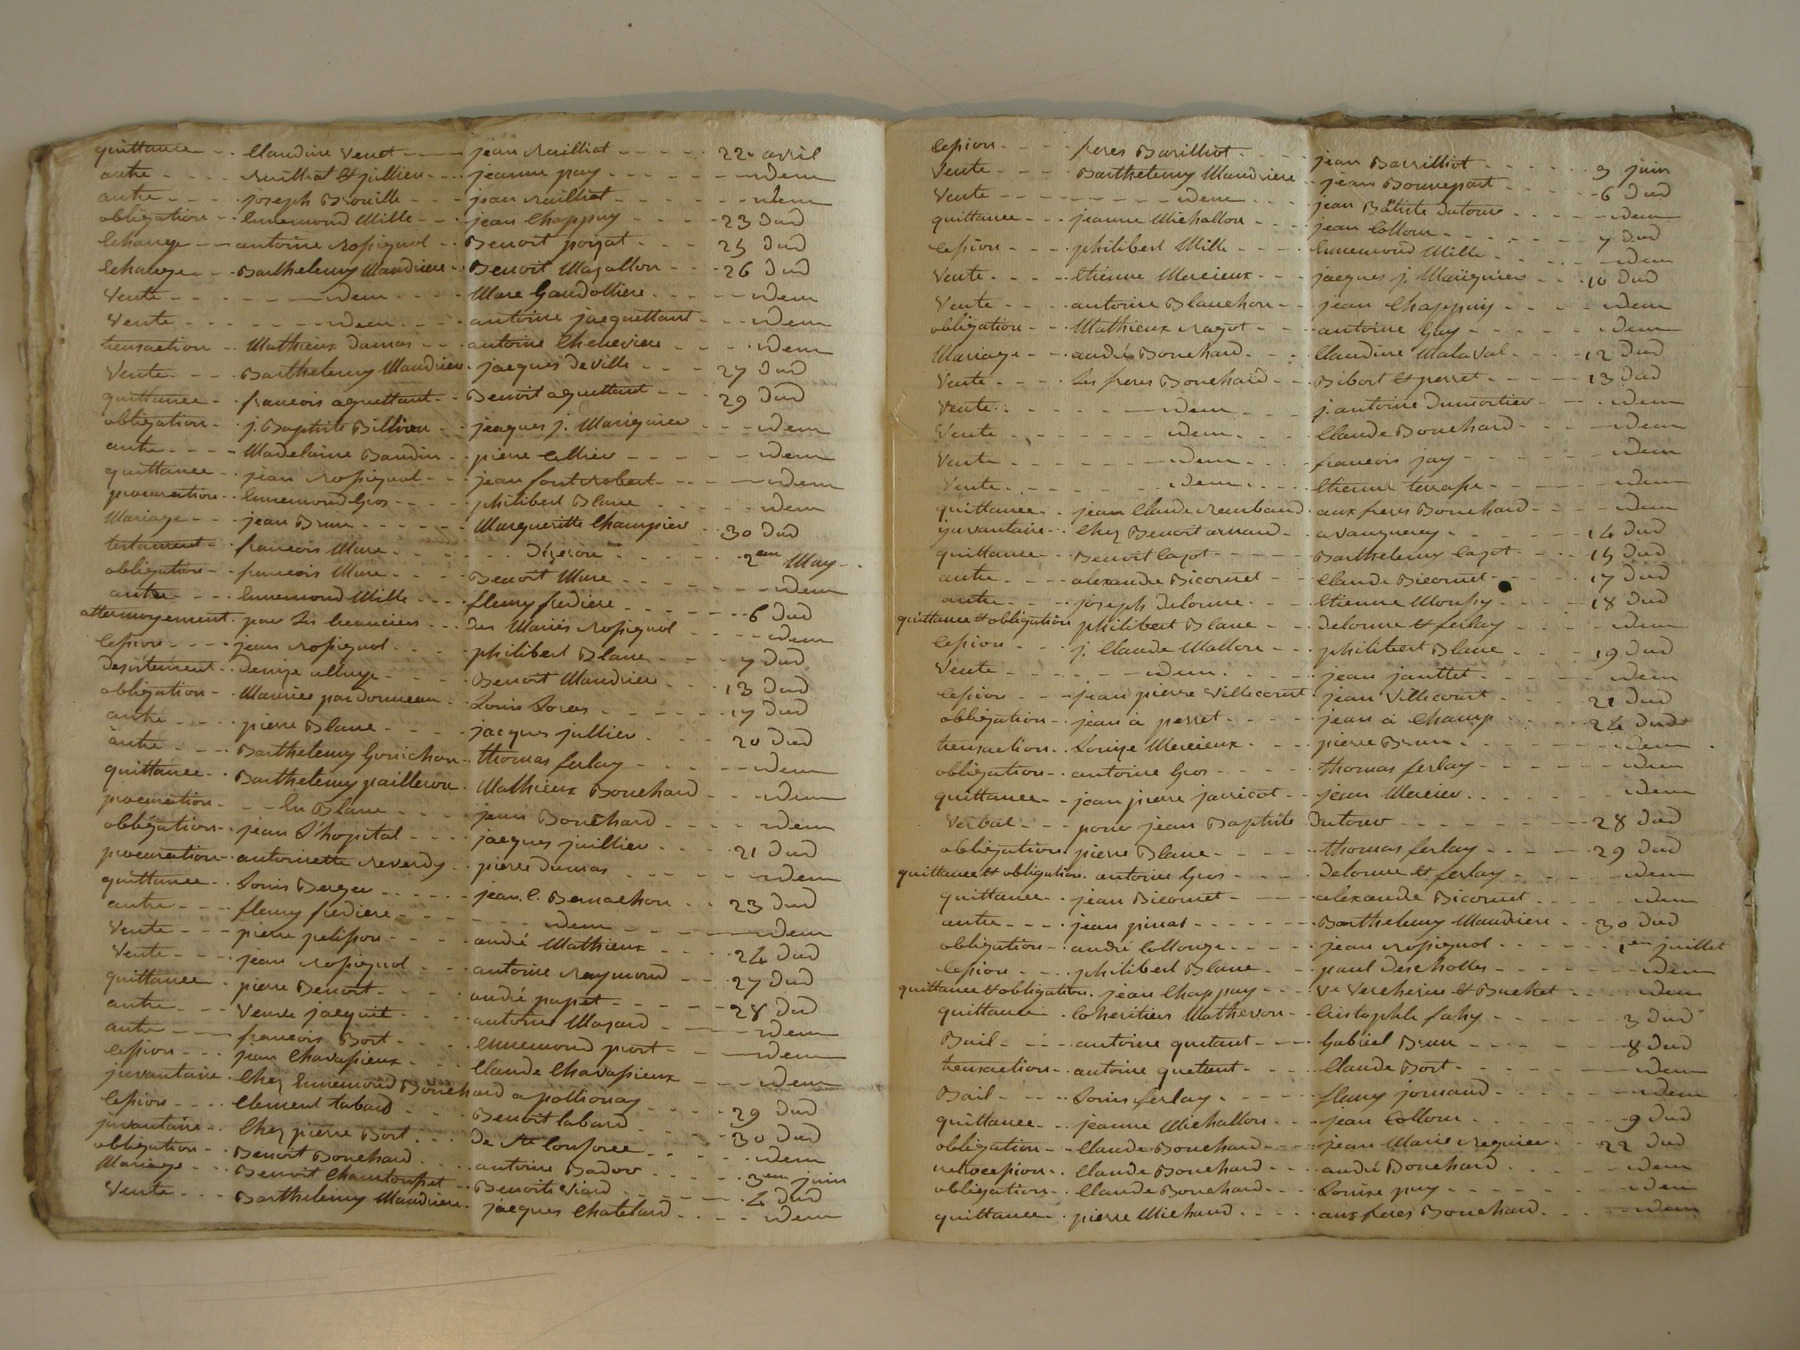 quittance - - Claudine Venet - - jean ruilliat - - - - - 22 avril
autre - - - - ruilliat et jullien - - - jeanne puy - - - - - - - idem
autre - - - - joseph Brouille - - - jean ruilliat - - - - - - idem
obligation - - Ennemond Mille - - - jean Chappuy - - - - - 23 dud
Echange - - antoine rossignol - - Benoit ponsat - - - - 25 dud
Echange - - Barthelemy Maudriere - Benoit Mazallon - - - 26 dud
Vente - - - - - - idem - - - - Marc Gaudolliere - - - - - idem
Vente - - - - - - idem - - - - antoine jacquettant - - - idem
transaction - Mathieux Dumas - - antoine Cheneviere - - - - idem
Vente - - - Barthelemy Maudriere - jacques deville - - - 27 dud
quittance - francois aguettant - Benoit aguettant - - - 29 dud
obligation - j. Baptiste Billion - jacques j. Mariguier - - - idem
autre - - - - Madelaine Baudin - pierre Cellier - - - - - idem
quittance - jean rossignol - - jean fontrobert - - - - - idem
procuration - Ennemond Gros - - - philibert Blanc - - - - - - idem
Mariage - - jean Brun - - - - - Margueritte Champier - - 30 dud
testament - francois Marc - - - - - - - - 2em May
obligation - - francois Marc - - - Benoit Marc - - - - - - idem
autre - - - Ennemond Mille - - - fleury fredière - - - - - - 6 dud
attermoyement pour les creanciers - - des Mariés rossignol - - - - idem
Cession - - - - jean rossignol - - - philibert Blanc - - - - 7 dud
desistement - denize - - - - Benoit Maudrieu - - - - 13 dud
obligation - - Maurice pardonneau - Louis Soras - - - - - 17 dud
autre - - - - pierre Blanc - - - - jacques jullien - - - - 20 dud
autre - - - Barthelemy Gonichon - thomas ferlay - - - - - - idem
quittance - Barthelemy pailleron - Mathieux Bouchard - - - idem
procuration - - - En Blanc - - - - jean Bouchard - - - - - - idem
obligation - - jean L'hopital - - - jacques juillien - - - - 21 dud
procuration - antoinette reverdy - - pierre Dumas - - - - - - - idem
quittance - - Louis Berger - - - - jean C. Bernachon - - 23 dud
autre - - - - fleury fredière - - - - - - idem - - - - - - idem
Vente - - - - pierre pelisson - - - - andré Mathieux - - - - 24 dud
Vente - - - - jean rossignol - - - antoine raymond - - - 27 dud
quittance - - pierre Benoit - - - - andré papet - - - - - 28 dud
autre - - - veuve jacquit - - - antoine Mazard - - - - - idem
autre - - - francois Bort - - - - Ennemond piort - - - - idem
Cession - - - jean Chavassieux - - - Claude Chavassieux - - - idem
juvantaire - Chez Ennemond Bouchard a pollionay - - - - - 29 dud
Cession - - - - Clement tabard - - - Benoit tabard - - - - - 30 dud
juvantaire - - Chez pierre Bort - - - de Ste Consorce - - - - - - idem
obligation - - Benoit Bouchard - - - antoine Badoor - - - - 3em juin
Mariage - - - Benoit Chantousset - - Benoite Viard - - - - - 4 dud
Vente - - - Barthelemy Maudriere - jacques Chatelard - - - - idem
Cession - - - - freres Barilliot - - - - jean Barrilliot - - - - - 3 juin
Vente - - - - Barthelemy Maudriere - - jean Bonnepart - - - - - 6 dud
Vente - - - - - - - idem - - - - jean Batiste dutour - - - - - idem
quittance - - jeanne Michallon - - jean Collom - - - - - - - 7 dud
Cession - - - philibert Mille - - - Ennemond Mille - - - - - - idem
Vente - - - - Etienne Mercieux - - jacques j. Mariguier - - - 10 dud
Vente - - - - antoine Blanchon - - jean Chappuy - - - - - idem
obligation - - Mathieux ragot - - - antoine Gay - - - - - - idem
Mariage - - andré Bouchard - - - Claudine Malaval - - - 12 dud
Vente - - - - Les freres Bouchard - - Bibort et perret - - - - - 13 dud
Vente - - - - - - idem - - - - j. antoine dumortier - - - idem
Vente - - - - - - - idem - - - - Claude Bouchard - - - - idem
Vente - - - - - - - idem - - - - francois jay - - - - - - idem
Vente - - - - - - - idem - - - - Etienne terrasse - - - - - idem
quittance - - jean Claude rembaud - aux freres Bouchard - - - idem
juvantaire - Chez Benoit arnaud - - a vaugneray - - - - - - 14 dud
quittance - - Benoit Cazot - - - - - Barthelemy Cazot - - - 15 dud
autre - - - - alexandre Bicornet - - Claude Bicornet - - - - 17 dud
autre - - - - joseph Delorme - - - Etienne Moussy - - - - 18 dud
quittance et obligation philibert Blanc - - delorme et ferlay - - - - idem
Cession - - - j. Claude Mallon - - - philibert Blanc - - - - 19 dud
Vente - - - - - - idem - - - - jean jantet - - - - - - idem
Cession - - - jean pierre Villecourt - jean Villecourt - - - - 21 dud
obligation - - jean à perret - - - - jean à Champ - - - - 24 dud
transaction - - Louise Mercieux - - - pierre Brun - - - - - - idem
obligation - - antoine Gros - - - - thomas ferlay - - - - - - idem
quittance - - jean pierre jarricot - - jean Mercier - - - - - - idem
Verbal - - - pour jean Baptiste Dutour - - - - - - - - 28 dud
obligation - pierre Blanc - - - - - thomas ferlay - - - - - 29 dud
quittance et obligation - antoine Gros - - - - delorme et ferlay - - - - - idem
quittance - - jean Bicornet - - - alexandre Bicornet - - - - idem
autre - - - - jean pinat - - - - - Barthelemy Maudriere - - 30 dud
obligation - - andré Collonge - - - - jean rossignol - - - - - 1er juillet
Cession - - - philibert Blanc - - - paul descholles - - - - - - idem
quittance et obligation - jean Chappuy - - - Ve Vercherin et Buchet - - - - idem
quittance - - Coheritiers Mathevon - - Cristophle fahy - - - - - 3 dud
Bail - - - - antoine quetant - - - Gabriel Brun - - - - - - 8 dud
transaction - - antoine quettent - - - Claude Bort - - - - - - idem
Bail - - - - Louis ferlay - - - - fleury jornand - - - - - idem
quittance - - jeanne Michallon - - - jean Collom - - - - - - 9 dud
obligation - - Claude Bouchard - - - jean Marie reguier - - - 22 dud
retrocession - - Claude Bouchard - - - andré Bouchard - - - - - idem
obligation - - Claude Bouchard - - - Louise puy - - - - - - - idem
quittance - - pierre Michaud - - - - aux freres Bouchard - - - - idem